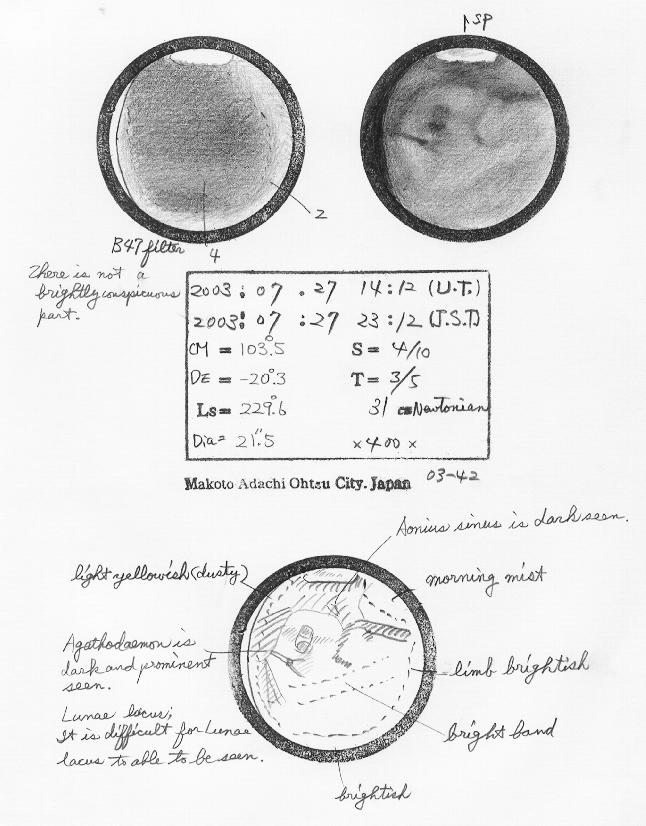 ↑SP
2
B47 filter
4
There is not a
brightly conspicuous
part.
2003 : 07 . 27 14:12 (U.T.)
2003 : 07 : 27 23:12 (J.S.T)
CM = 103°.5 S = 4/10
DE = -20°.3 T = 3/5
Ls = 229°.6 31 cm Newtonian
Dia = 21".5 ×400×
Makoto Adachi Ohtsu City. Japan 03-42
Aonius sinus is dark seen.
light yellowish (dusty)
morning mist
Agathodaemon is
dark and prominent
seen.
limb brightish
Lunae lacus;
It is difficult for Lunae
lacus to able to be seen.
bright band
brightish